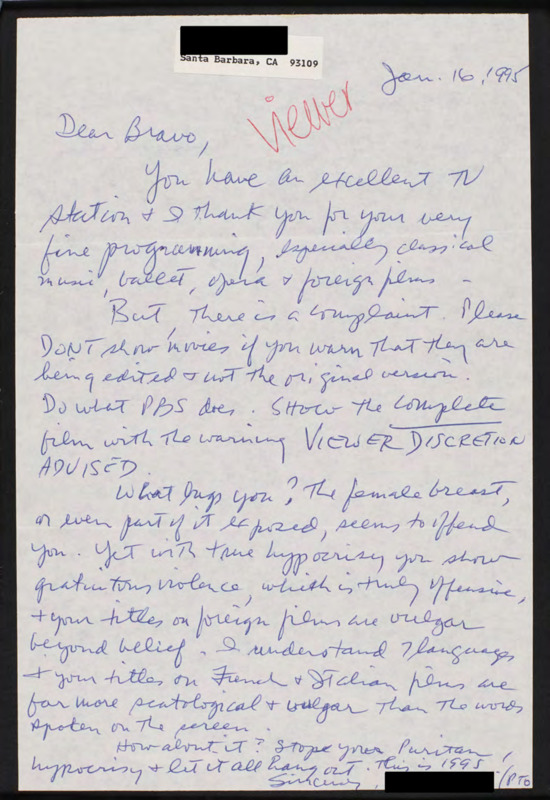 Santa Barbara, CA 93109
Jan. 16, 1995
Viewer
Dear Bravo,
You have an excellent TV
station & I thank you for your very
fine programming, especially classical
music, ballet, opera & foreign films -
But, there is a complaint. Please
DONT show movies if you warn that they are
being edited & not the original version.
Do what PBS does. SHOW the complete
film with the warning VIEWER DISCRETION
ADVISED.
What bugs you? The female breast,
or even part of it exposed, seems to offend
you. Yet with true hypocrisy you show
gratuitous violence, which is truly offensive,
& your titles on foreign films are vulgar
beyond belief. I understand 7 languages
& your titles on French & Italian films are
far more scatological & vulgar than the words
spoken on the screen.
How about it? Stop your Puritan
hypocrisy & let it all hang out. This is 1995
Sincerely, /PTO